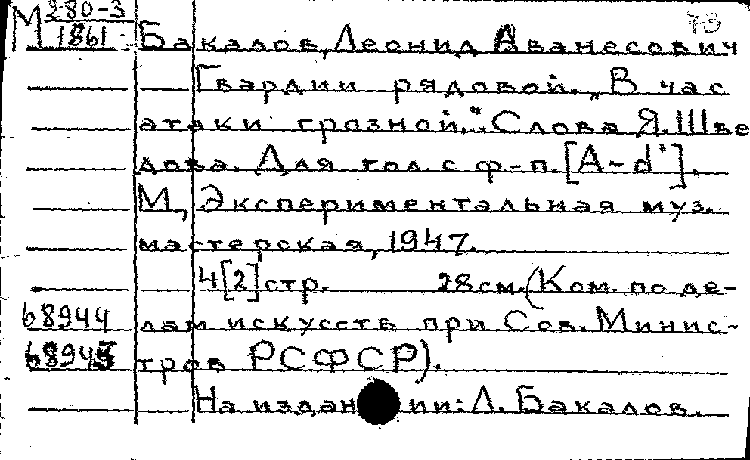 М 280-3
1861
73
Бакалов, Леонид Аванесович
Гвардии рядовой. „В час
атаки грозной." Слова Я. Шве
дова. Для гол. с ф-п. [A-d'].
М., Экспериментальная муз.
мастерская, 1947.
4[2]стр. 28см. (Ком. по де-
68944 лам искусств при Сов. Минис-
68945 тров РСФСР).
На издании: Л. Бакалов.